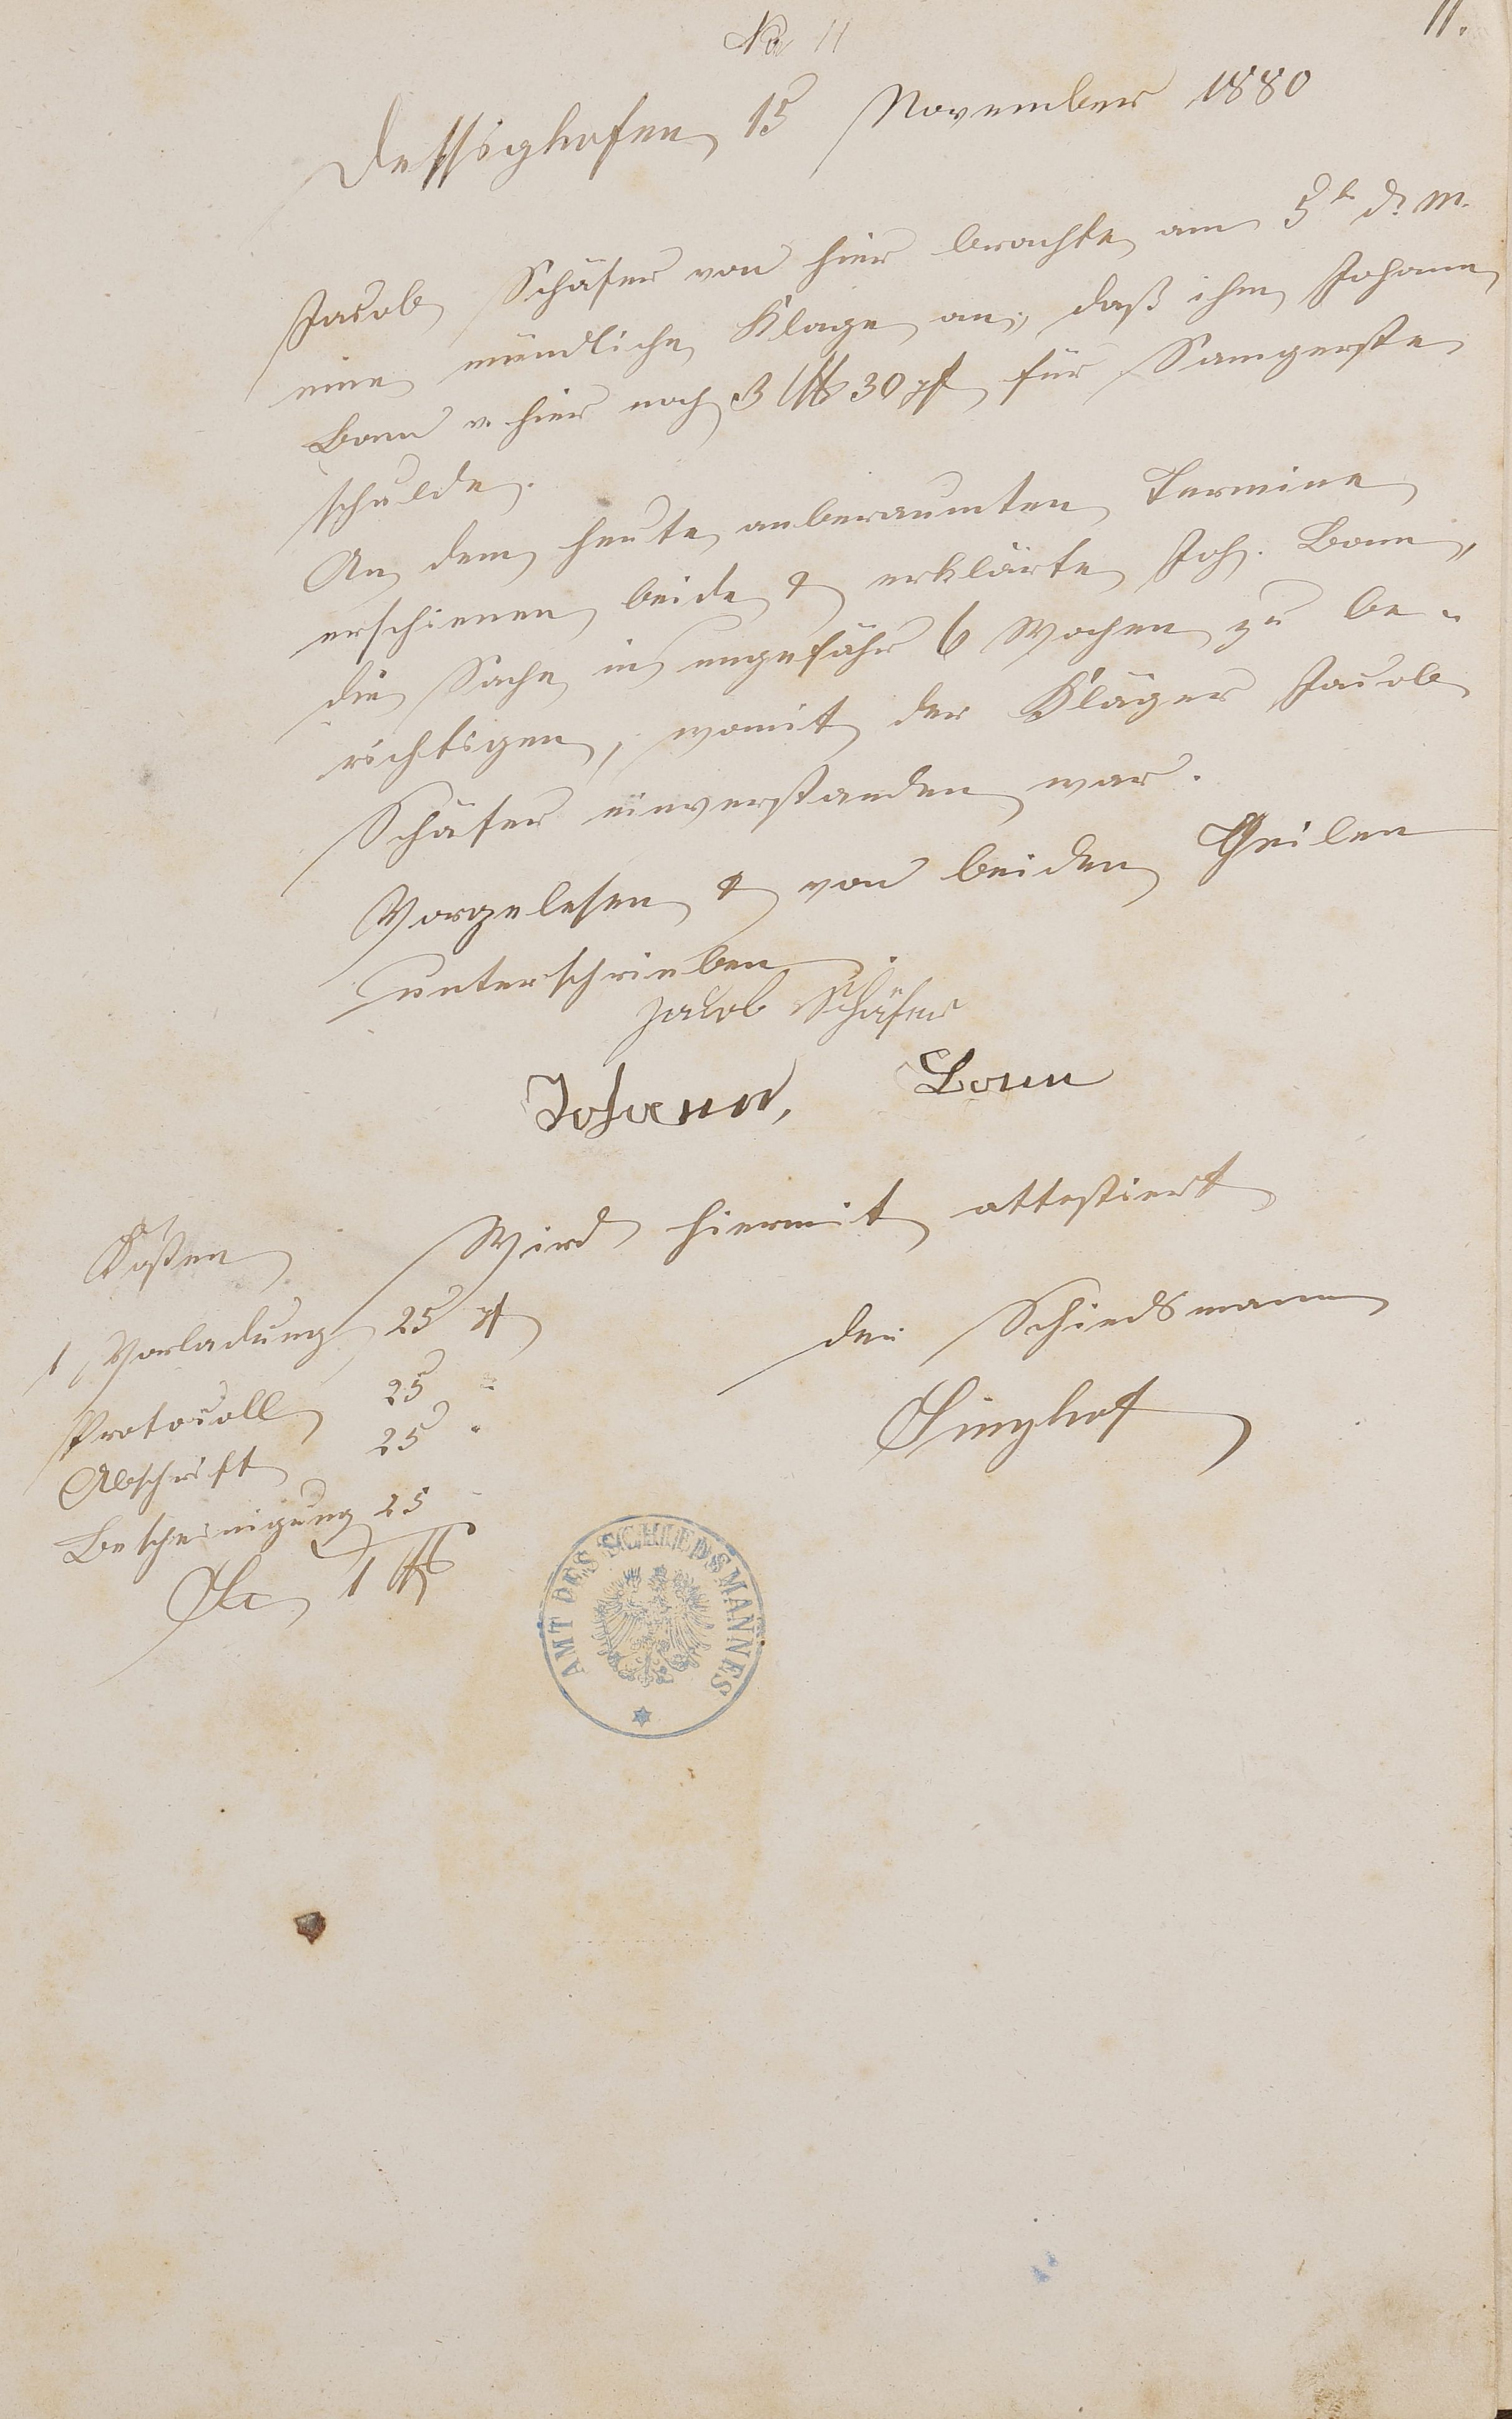 No 11
11.
Dessighofen, 15 November 1880
Jacob Schäfer von hier brachte am 5t d. M.
eine mündliche Klage an, daß ihm Johann
Bonn v. hier noch 3 M 30 pf für Samgerste
schulde.
An dem heute anberaumten Termine
erschienen beide & erklärte Joh. Bonn,
die Sache in ungefähr 6 Wochen zu be-
richtigen, womit der Kläger Jacob
Schäfer einverstanden war.
Vorgelesen & von beiden Theilen
unterschrieben.
Jacob Schäfer
Johann, Bonn
Wird hiermit attestiert
der Schiedsmann
Singhof
Kosten
1 Vorladung 25 pf
Protocoll 25 "
Abschrift 25 "
Bescheinigung 25
Sa 1 M
AMT DES SCHIEDSMANNES